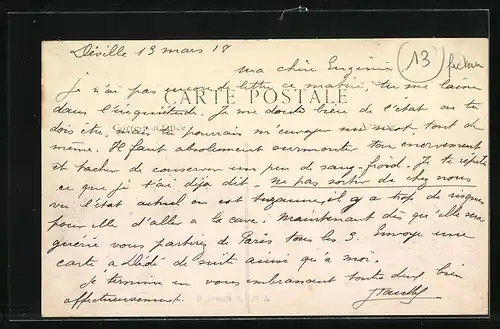 Déville 13 mars 18
13
Ma chère Eugénie
Je n'ai pas encore de lettre ce matin, tu me laisse
CARTE POSTALE
dans l'inquiétude. Je me doute bien de l'état ou tu
Correspondance
dois être, mais tu pourrais m'envoyer un mot, tout de
même. Il faut absolument surmonter ton énervement
et tacher de conserver un peu de sang-froid. Je te répète
ce que je t'ai déja dit - ne pas sortir de chez nous
vu l'état actuel ou est Suzanne, il y a trop de risques
pour elle d'aller a la cave. Maintenant dès qu'elle sera
guérie vous partirez de Paris tous les 3. Envoye une
carte a Dédé de suite ainsi qu'à moi.
Je termine en vous embrassant toutes deux bien
affectueusement.